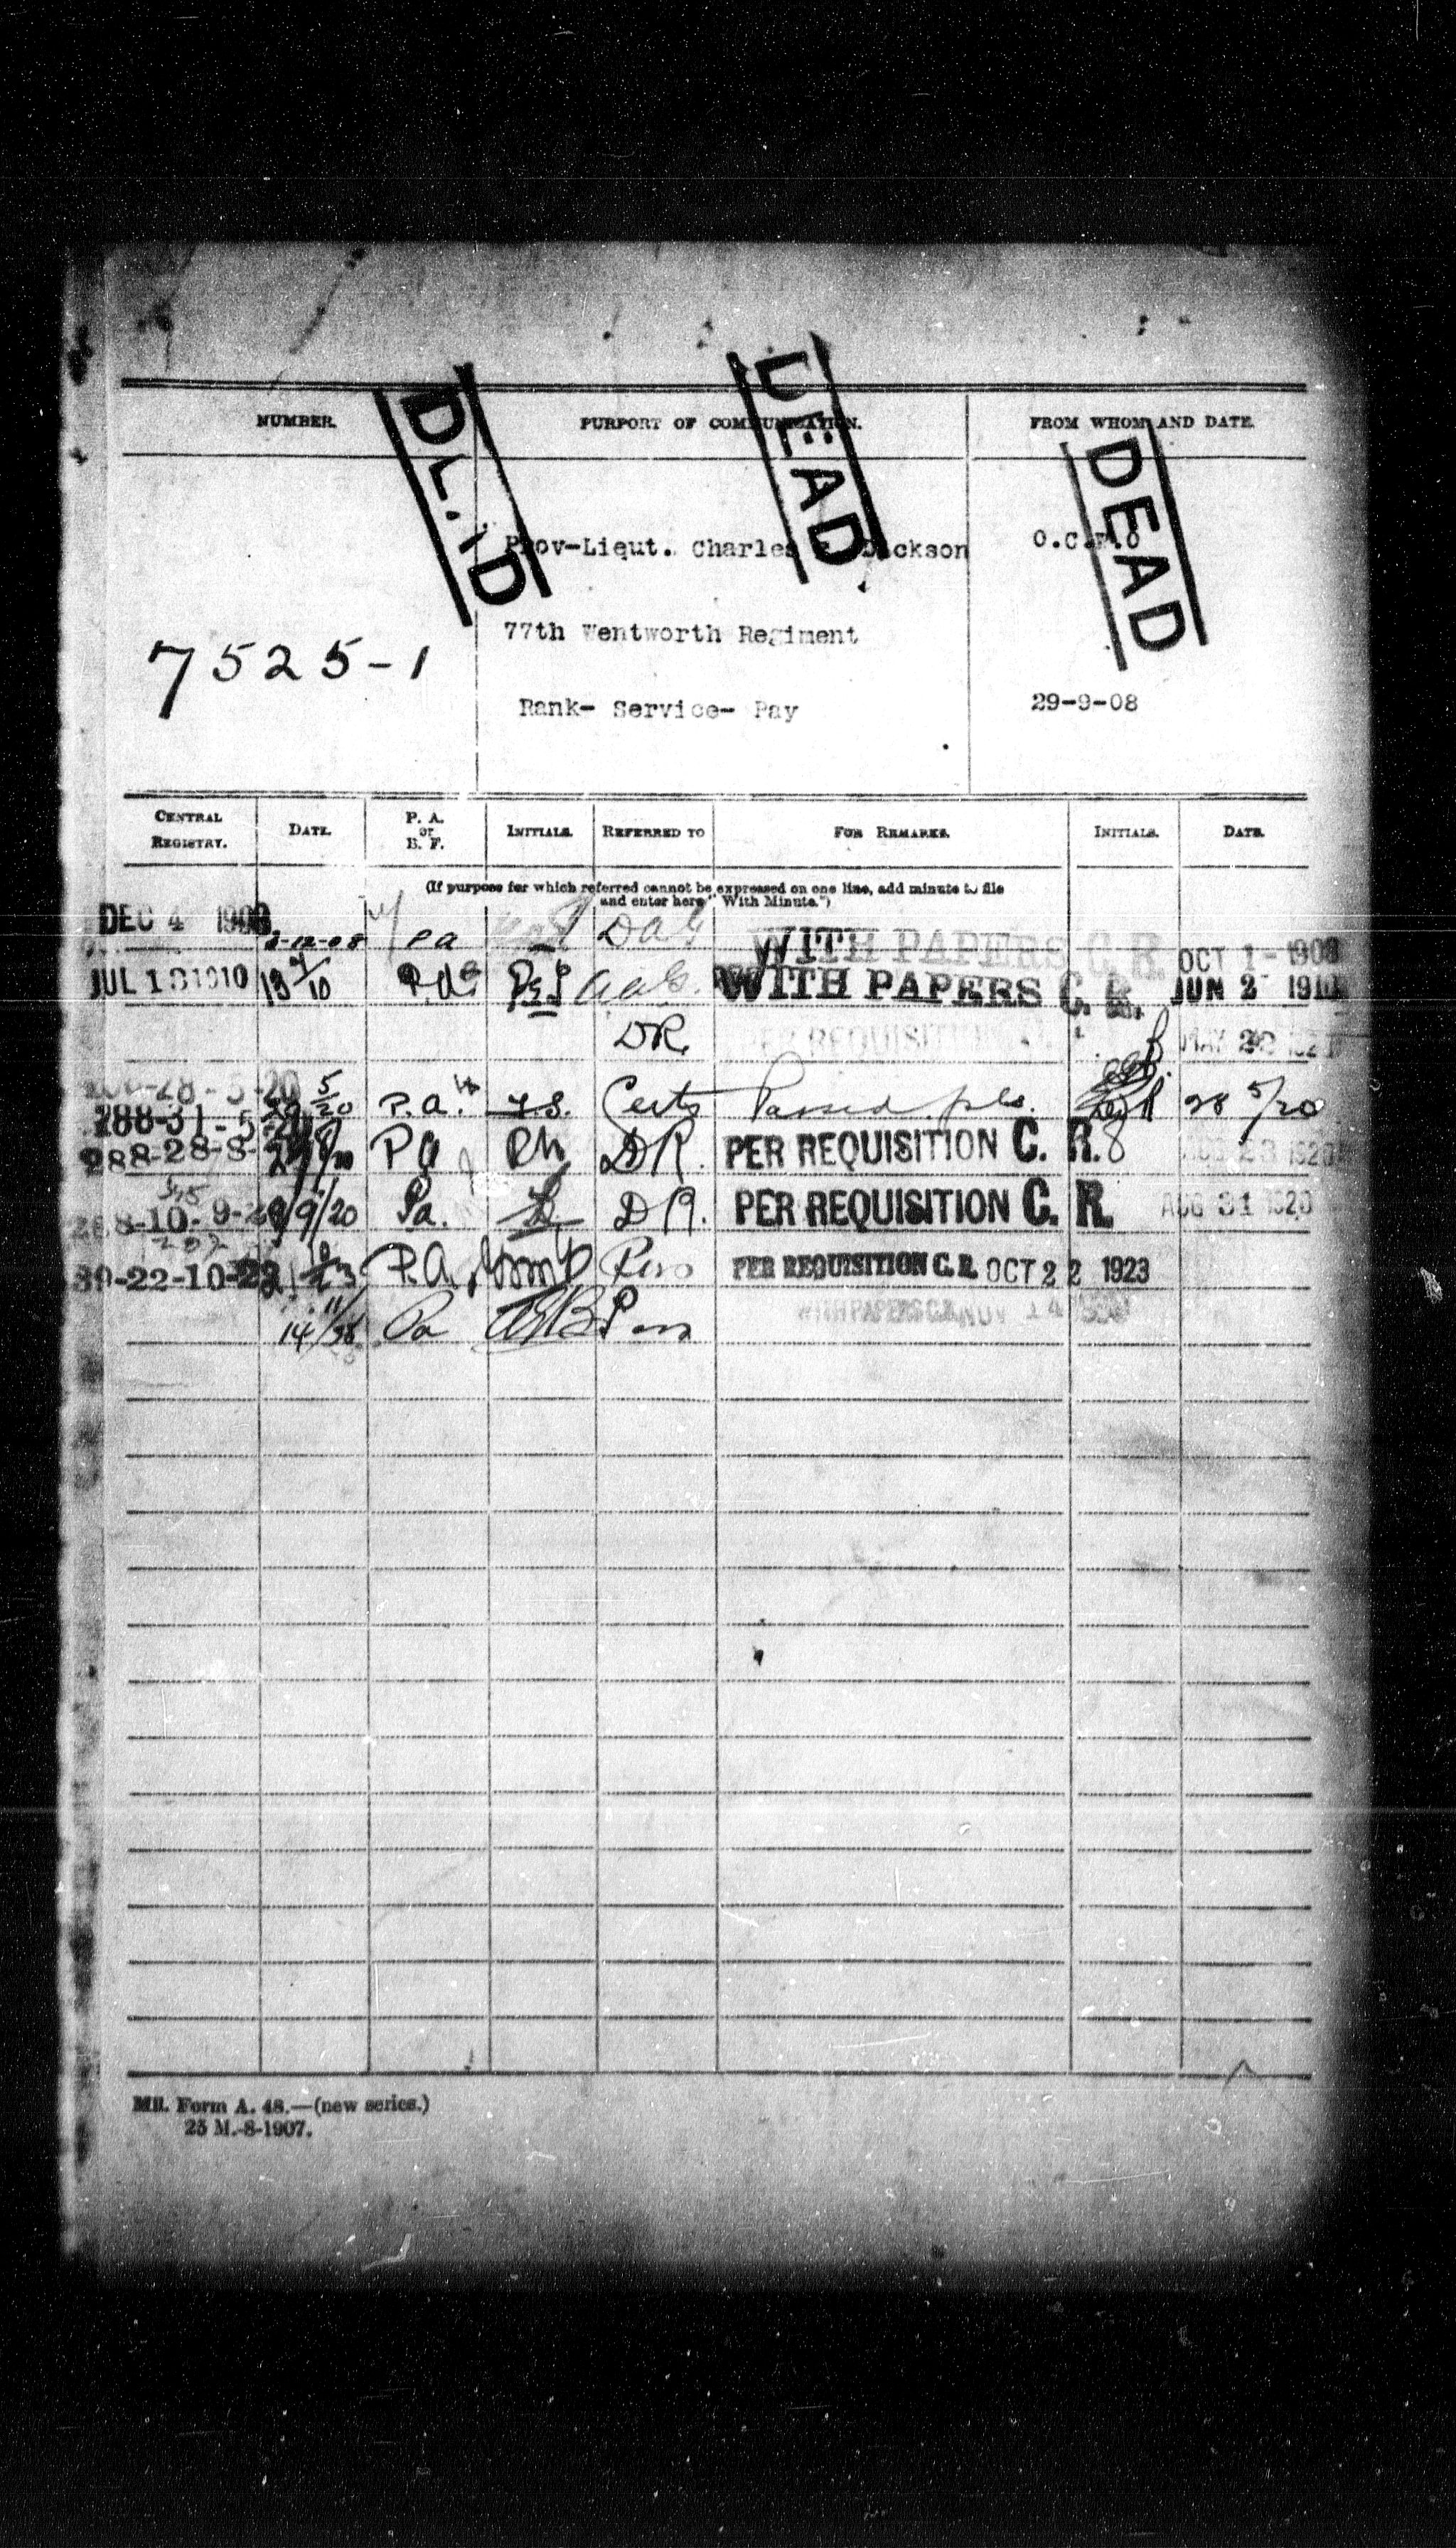 NUMBER. PURPORT OF COMMUNICATION. FROM WHOM AND DATE.
DEAD
DEAD
DEAD
Prov-Lieut. Charles Dickson O.C.W.O
77th Wentworth Regiment
7525-1
Rank- Service- Pay 29-9-08
CENTRAL REGISTRY. DATE. P. A. or B. F. INITIALS. REFERRED TO FOR REMARKS. INITIALS. DATE.
(If purpose for which referred cannot be expressed on one line, add minute to file
and enter here "With Minute.")
DEC 4 1908 PA DAG WITH PAPERS C. R. OCT 1 - 1908
JUL 13 1910 13 7/10 P.A. A.A.G. WITH PAPERS C. R. JUN 2 1910
DR. PER REQUISITION MAY 28
28-5-20
288-31-5-20 5/20 P.A. Certs Passed pls. 28 5/20
288-28-8- PA DR. PER REQUISITION C. R. AUG 28 1920
10-9-20 9/9/20 Pa. DR. PER REQUISITION C. R. AUG 31 1920
39-22-10-23 P.A. PER REQUISITION C. R. OCT 22 1923
14 11/ Pa WITH PAPERS C.R. NOV 14
Mil. Form A. 48.—(new series.)
25 M.-8-1907.